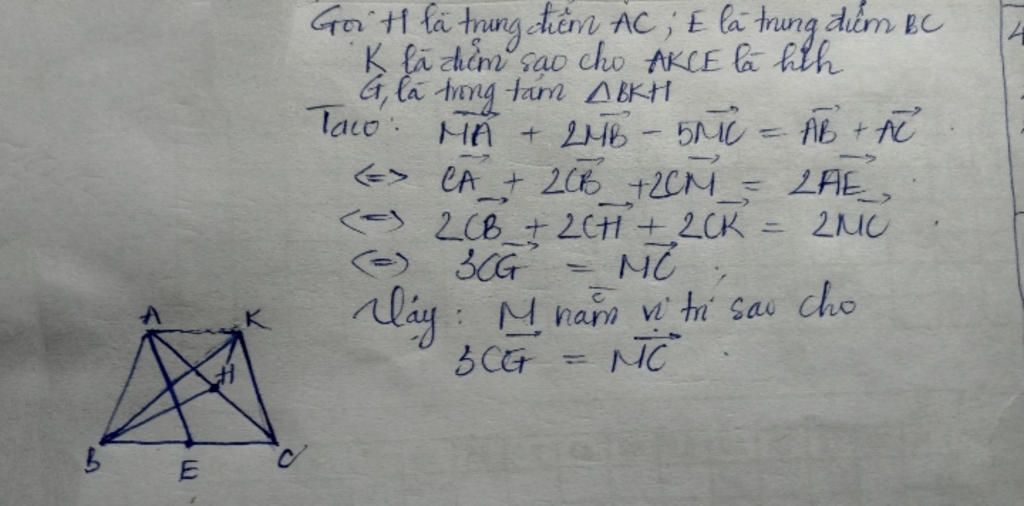 Gọi H là trung điểm AC; E là trung điểm BC
K là điểm sao cho AKCE là hbh
G, là trọng tâm △BKH
Ta có: MA + 2MB - 5MC = AB + AC
<=> CA + 2CB + 2CM = 2AE
<=> 2CB + 2CH + 2CK = 2MC
<=> 3CG = MC ;
Vậy: M nằm vị trí sao cho
3CG = MC .
A K
H
B E C
4